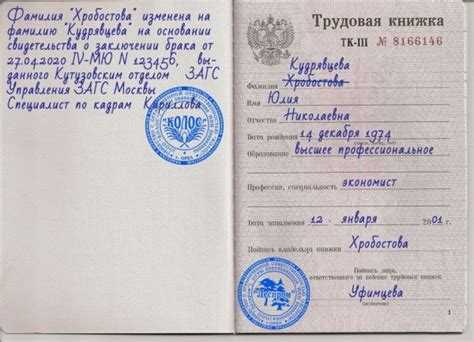 Фамилия "Хробостова" изменена на
фамилию "Кудрявцева" на основании
свидетельства о заключении брака от
27.04.2020 IV-МЮ N 123456, вы-
данного Кутузовским отделом ЗАГС
Управления ЗАГС Москвы
Специалист по кадрам Кариллова
КОЛОС
Трудовая книжка
ТК-III № 8166146
Кудрявцева
Фамилия Хробостова
Имя Юлия
Отчество Николаевна
Дата рождения 14 декабря 1974
Образование высшее профессиональное
Профессия, специальность экономист
Дата заполнения 12 января 2001 г.
Подпись владельца книжки Хробостова
Подпись лица,
ответственного за ведение трудовых книжек
Уфимцева
1